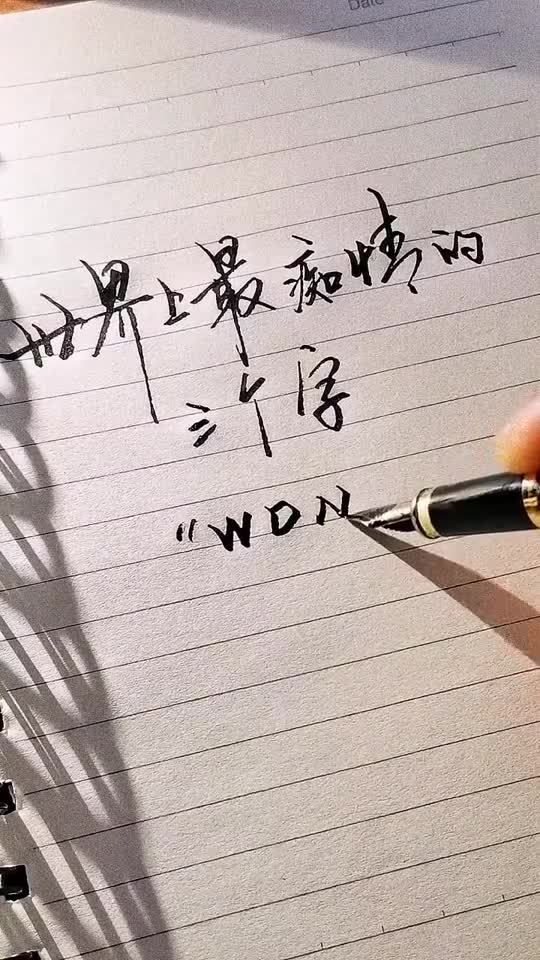 Date
世界上最痴情的
三个字
"WDN